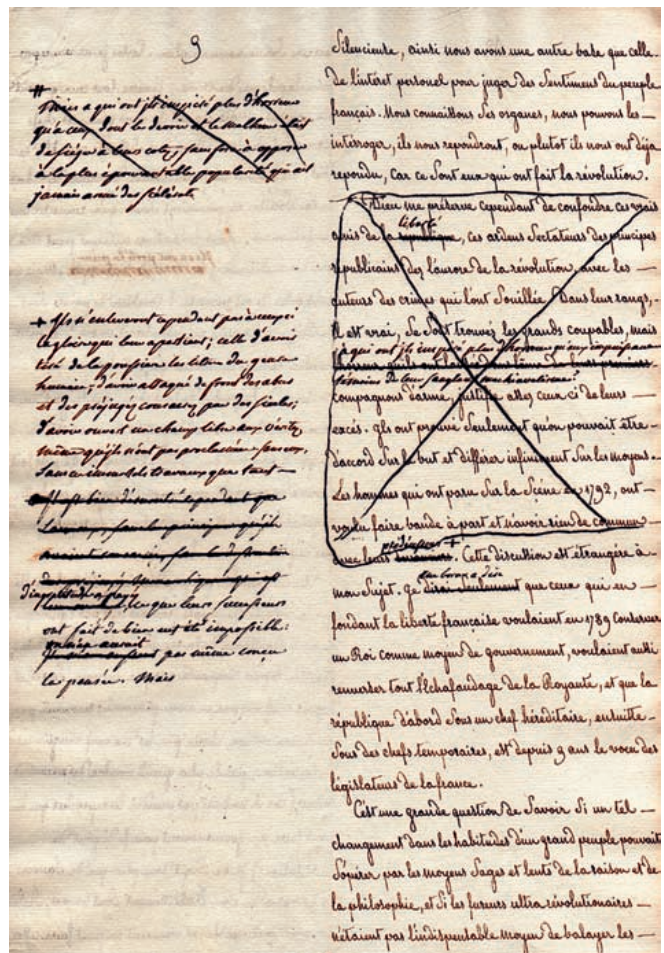 9
#
Mais a qui ont ils inspiré plus d'horreur
qu'a ceux dont le devoir et le malheur était
de siéger à leurs cotés, sans force à opposer
à la plus épouvantable popularité qui ait
jamais armé des scélérats
+ Ils n'enleveront cependant pas à ceux ci
la gloire qui leur appartient; celle d'avoir
tiré de la poussière les titres du genre
humain; d'avoir attaqué de front des abus
et des préjugés consacrés par des siècles;
d'avoir ouvert un champ libre aux vérités
même qu'ils n'ont pas proclamées
Sans ces immortels travaux
cependant que
ce que leurs successeurs
ont fait de bien eut été impossible:
on n'en aurait
pas même conçu
la pensée. Mais
Silencieuse, ainsi nous avons une autre base que celle
de l'intérêt personel pour juger des Sentimens du peuple
français. Nous connaissons Ses organes, nous pouvons les
interroger, ils nous repondront, ou plutot ils nous ont déja
repondu, car ce Sont eux qui ont fait la révolution.
Dieu me préserve cependant de confondre ces vrais
liberté
amis de la république, ces ardens Sectateurs des principes
républicains dez l'aurore de la révolution, avec les
auteurs des crimes qui l'ont Souillée. Dans leurs rangs,
Il est vrai, Se Sont trouvés les grands coupables, mais
à qui ont ils inspiré plus d'horreur
compagnons d'arme, justifie assez ceux ci de leurs
excés. Ils ont prouvé Seulement qu'on pouvait être
d'accord Sur le but et différer infiniment Sur les moyens.
Les hommes qui ont paru Sur la Scène en 1792, ont
voulu faire bande à part et n'avoir rien de commun
+
avec leurs . Cette discussion est étrangère à
me borne a dire
mon Sujet. Je dirai Seulement que ceux qui en
fondant la liberté française voulaient en 1789 Conserver
un Roi comme moyen de gouvernement, voulaient aussi
renverser tout l'Echafaudage de la Royauté, et que la
république d'abord Sous un chef héréditaire, ensuitte
Sous des chefs temporaires, est depuis 9 ans le voeu des
législateurs de la france.
C'est une grande question de Savoir Si un tel
changement dans les habitudes d'un grand peuple pouvait
S'opérer par les moyens Sages et lents de la raison et de
la philosophie, et Si les fureurs ultra révolutionaires
n'étaient pas l'indispensable moyen de balayer les